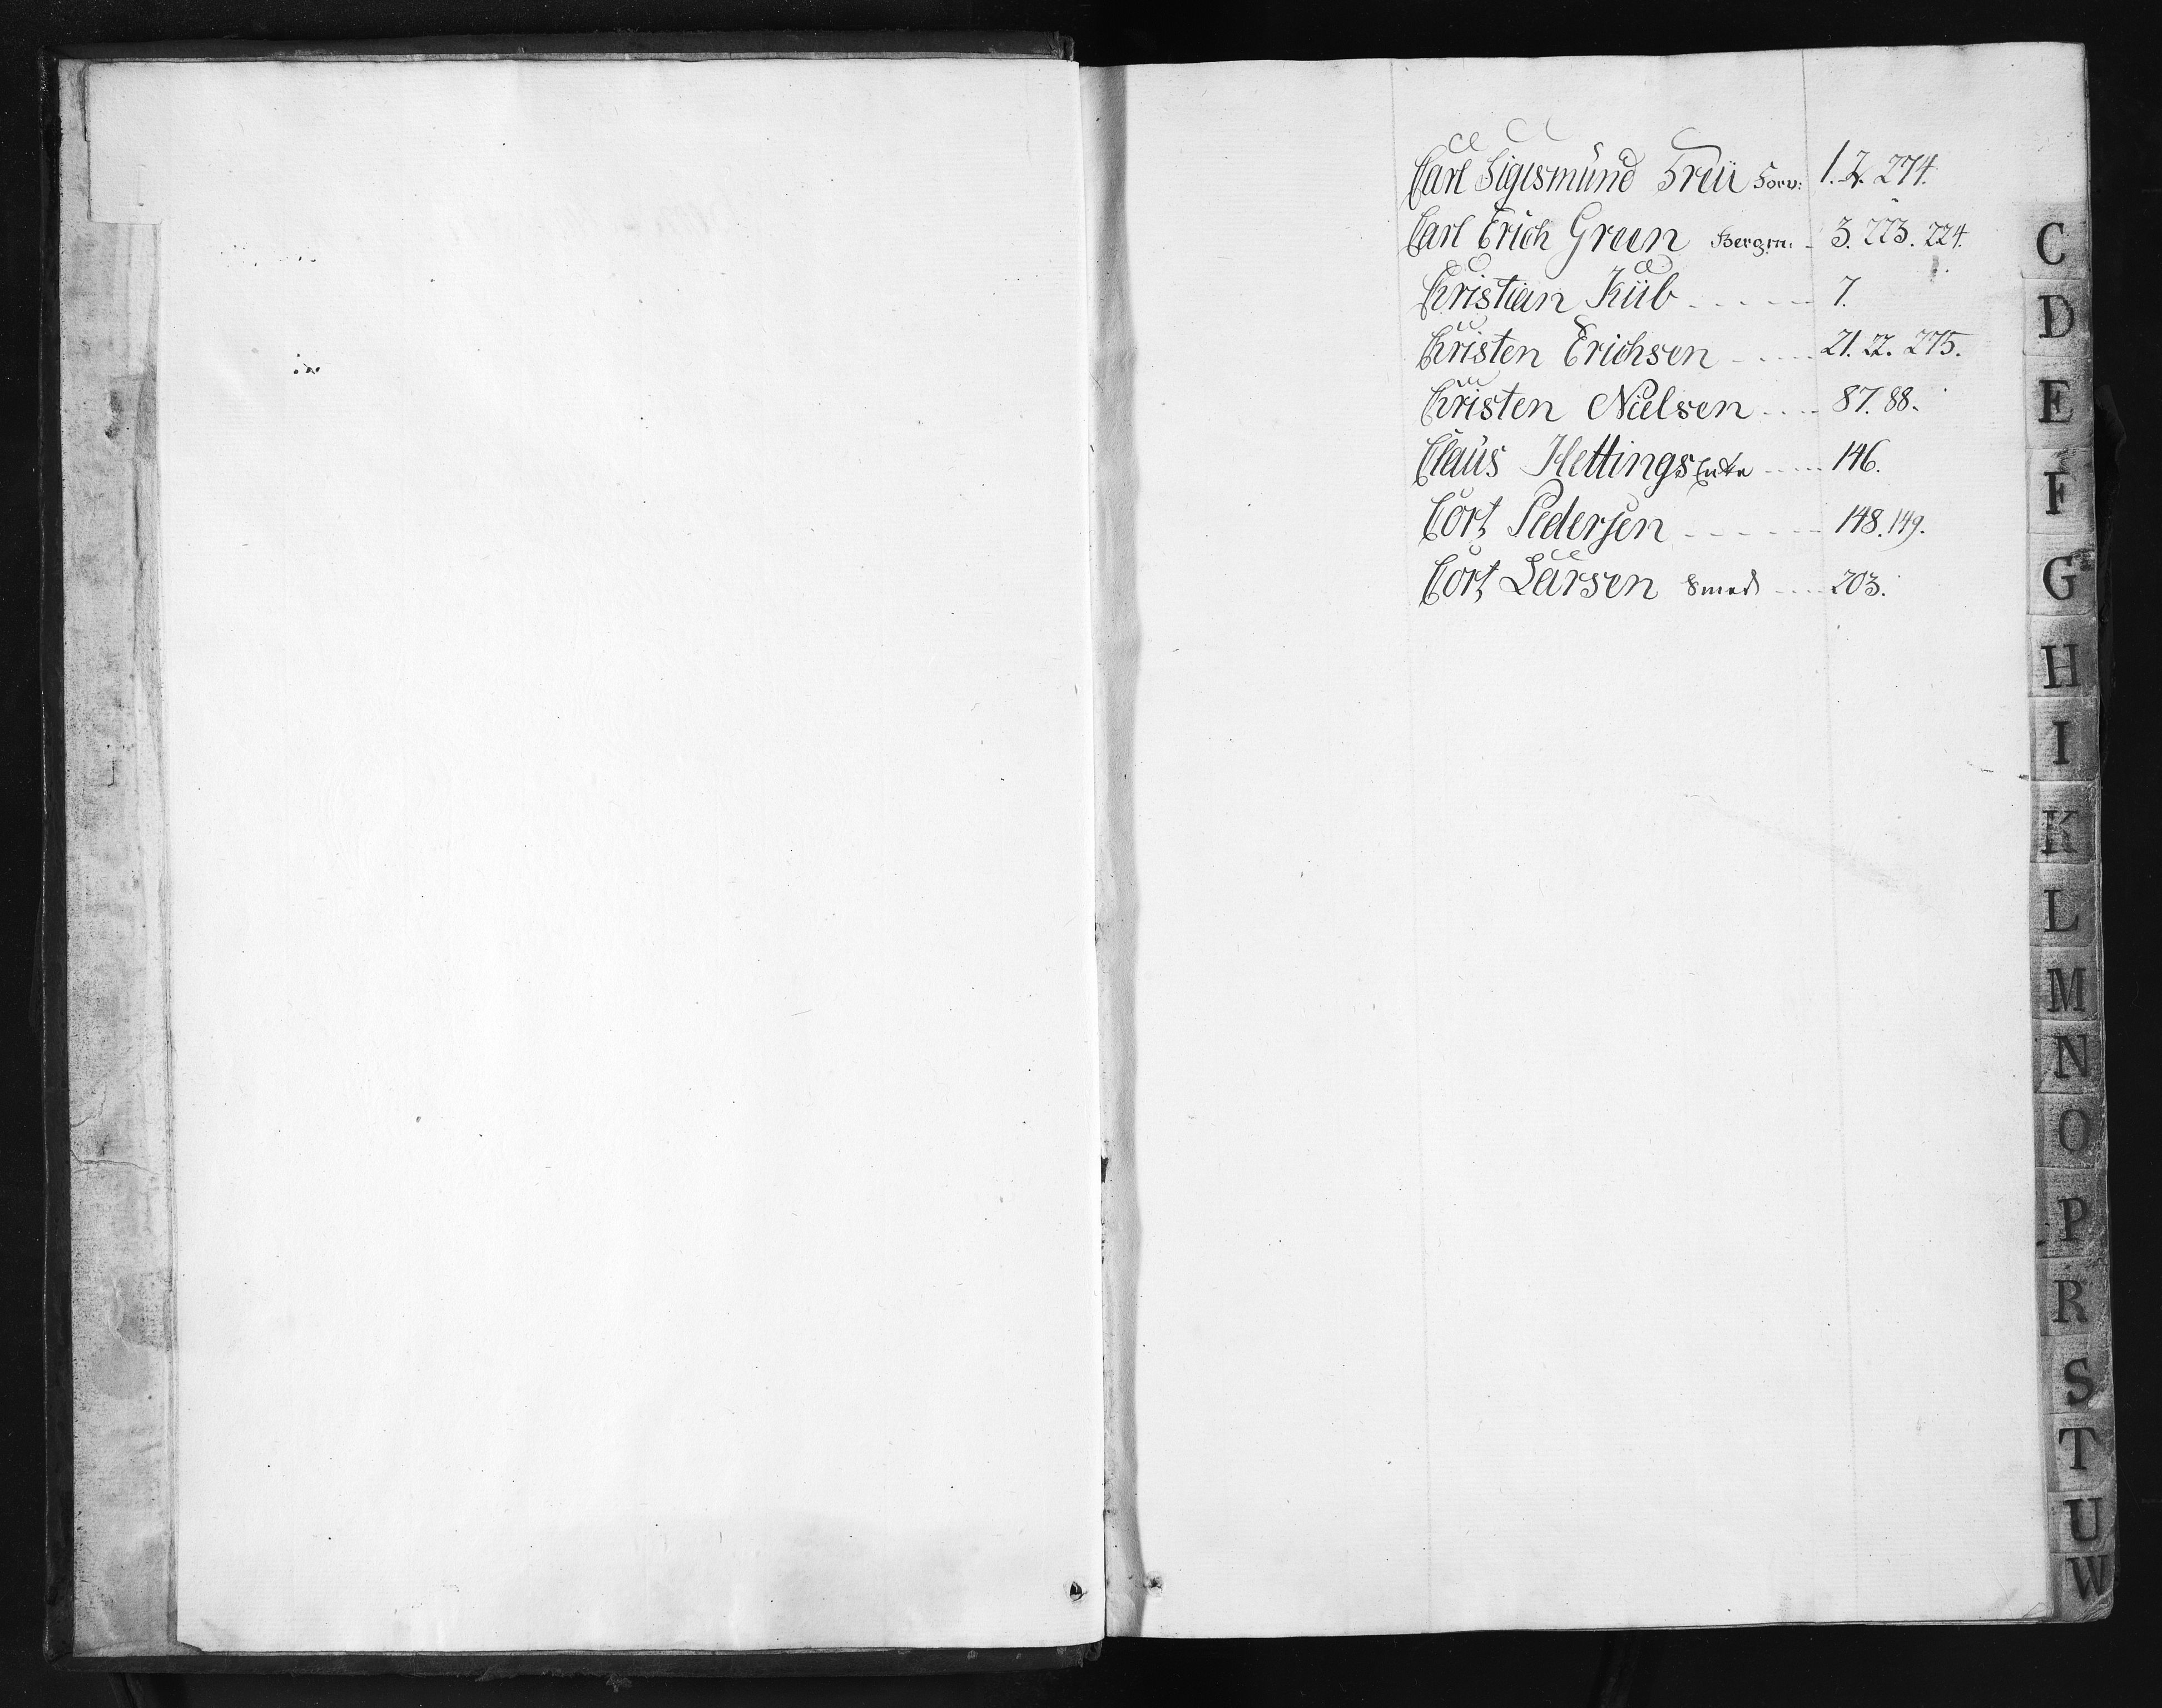 Carl Sigismund Freü Forv: 1. 2. 274.
Carl Erich Green Bergm: - 3. 223. 224.
Christian Küb - - - - - 7.
Christen Erichsen - - - - 21. 22. 275.
Christen Nielsen - - - - 87. 88.
Claus Hettings Enke - - - - 146.
Cort Pedersen - - - - - - 148. 149.
Cort Larsen Smed - - - - 203.
C
D
E
F
G
H
I
K
L
M
N
O
P
R
S
T
U
W